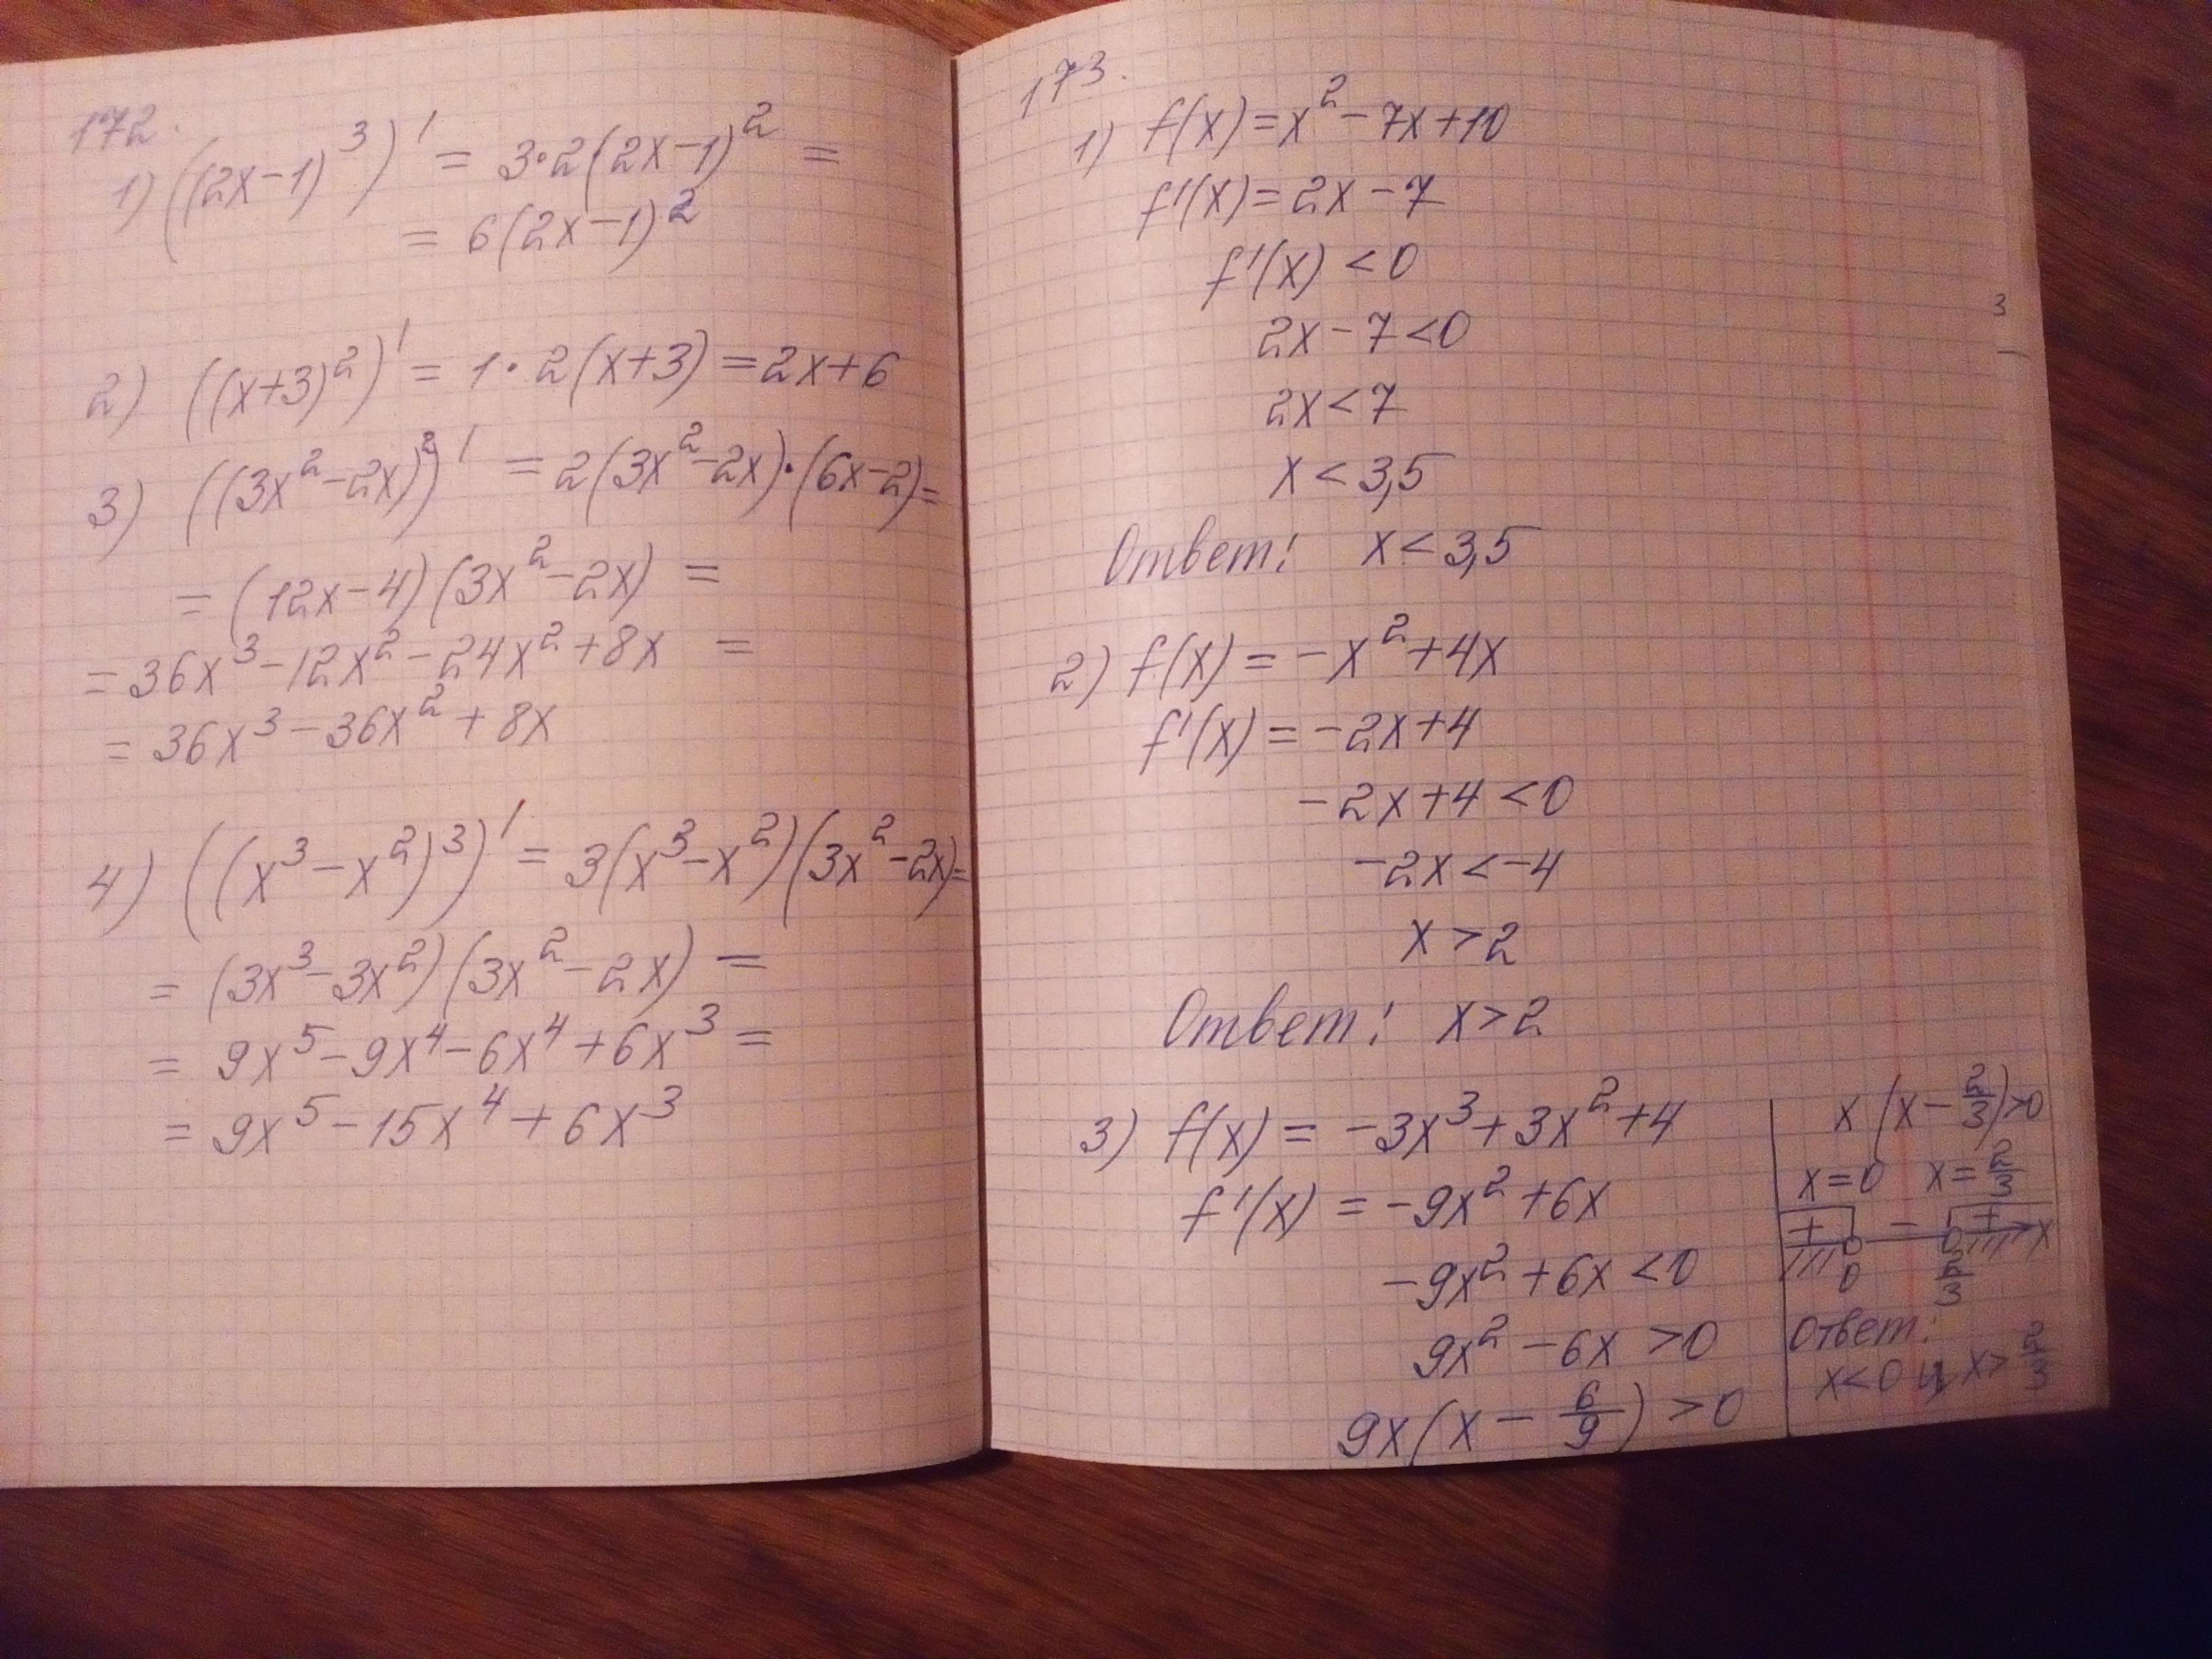 172.
1) ((2x-1)³)' = 3·2(2x-1)² =
= 6(2x-1)²
2) ((x+3)²)' = 1·2(x+3) = 2x+6
3) ((3x²-2x)²)' = 2(3x²-2x)·(6x-2)=
= (12x-4)(3x²-2x) =
= 36x³-12x²-24x²+8x =
= 36x³-36x²+8x
4) ((x³-x²)³)' = 3(x³-x²)(3x²-2x)=
= (3x³-3x²)(3x²-2x) =
= 9x⁵-9x⁴-6x⁴+6x³ =
= 9x⁵-15x⁴+6x³
173.
1) f(x)=x²-7x+10
f'(x)=2x-7
f'(x)<0
2x-7<0
2x<7
x<3,5
Ответ: x<3,5
2) f(x)=-x²+4x
f'(x)=-2x+4
-2x+4<0
-2x<-4
x>2
Ответ: x>2
3) f(x)=-3x³+3x²+4
f'(x)=-9x²+6x
-9x²+6x<0
9x²-6x>0
9x(x-6/9)>0
x(x-2/3)>0
x=0 x=2/3
+ - + x
0 2/3
Ответ:
x<0 и x>2/3
3